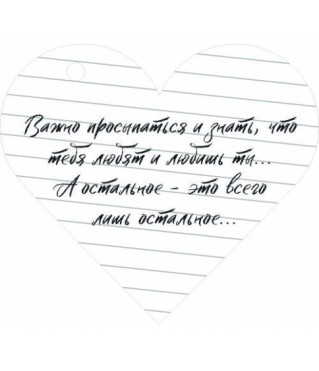 Важно просыпаться и знать, что
тебя любят и любишь ты...
А остальное - это всего
лишь остальное...